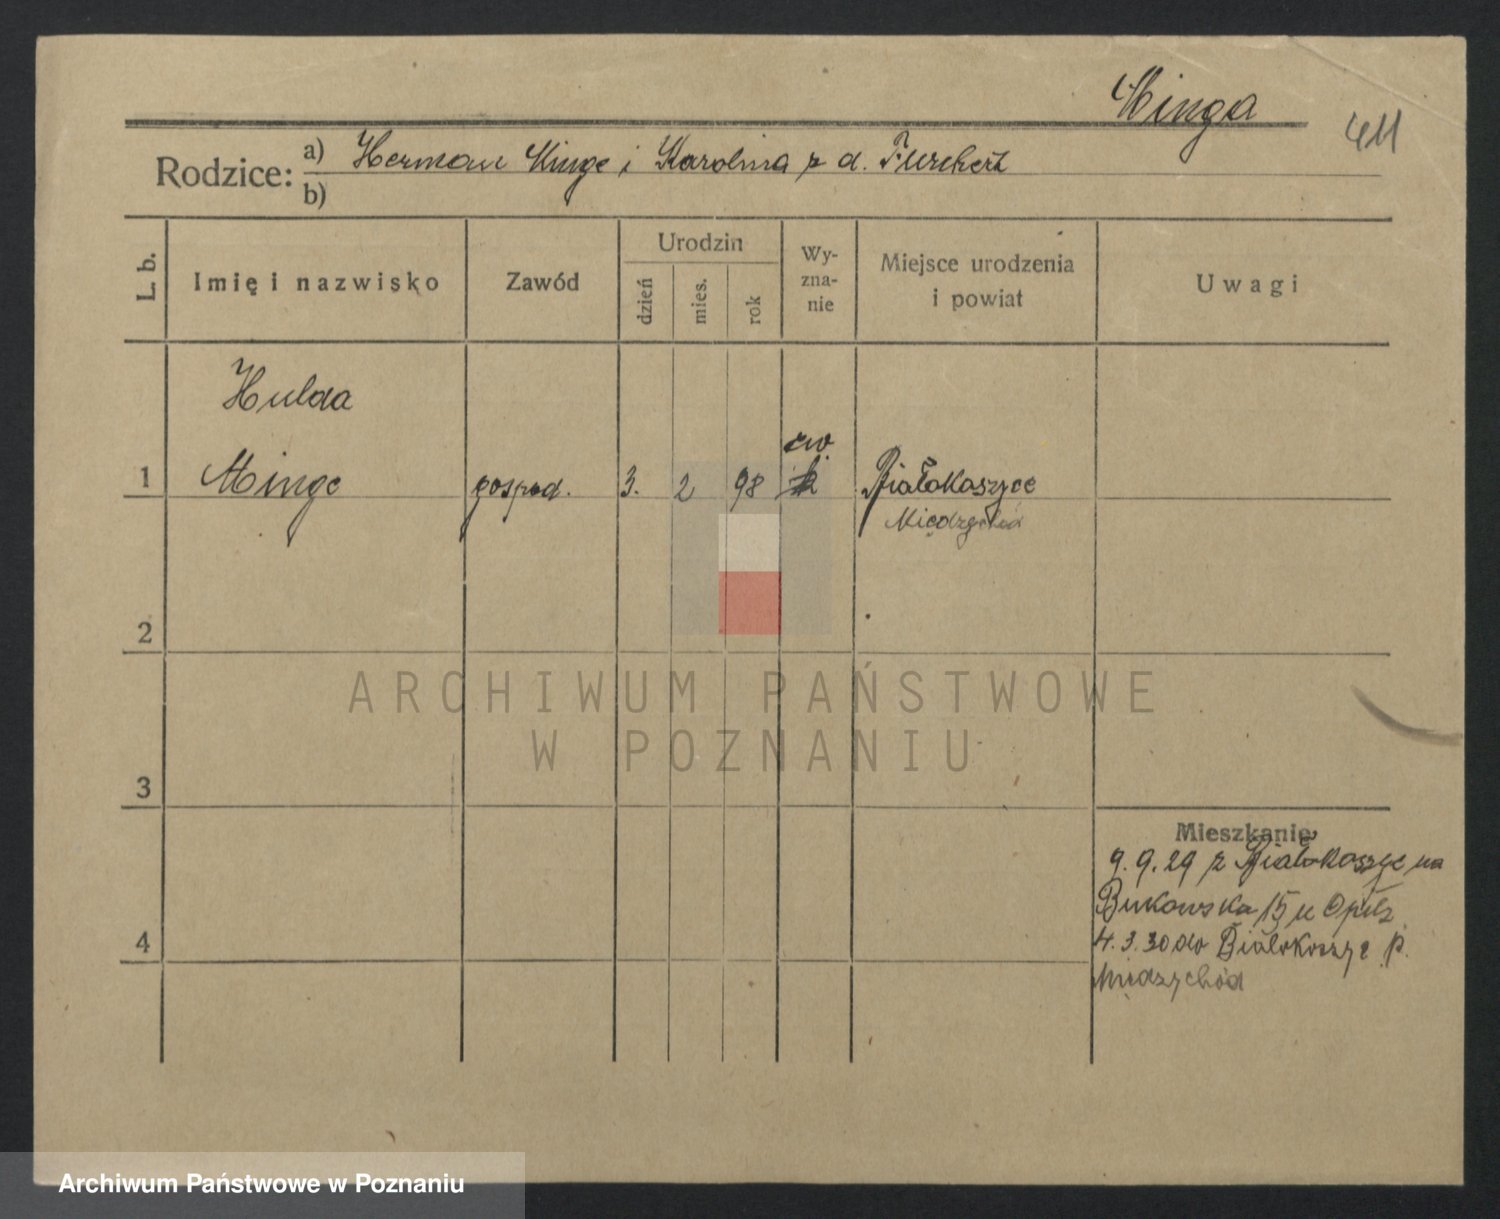 Minga
411
Rodzice: a) Herman Minge i Karolina z d.
b)
L. b.
Imię i nazwisko
Zawód
Urodzin
dzień
mies.
rok
Wy-
zna-
nie
Miejsce urodzenia
i powiat
Uwagi
Hulda
ew.
1 Minge gospod. 3. 2 98 Białokoszyce
Międzychód
2
ARCHIWUM PAŃSTWOWE
W POZNANIU
3
Mieszkanie
9.9.29 z Białokoszyc na
Bukowska 15 u Opitz
4
4.3.30 do Białokoszyc p.
Międzychód
Archiwum Państwowe w Poznaniu